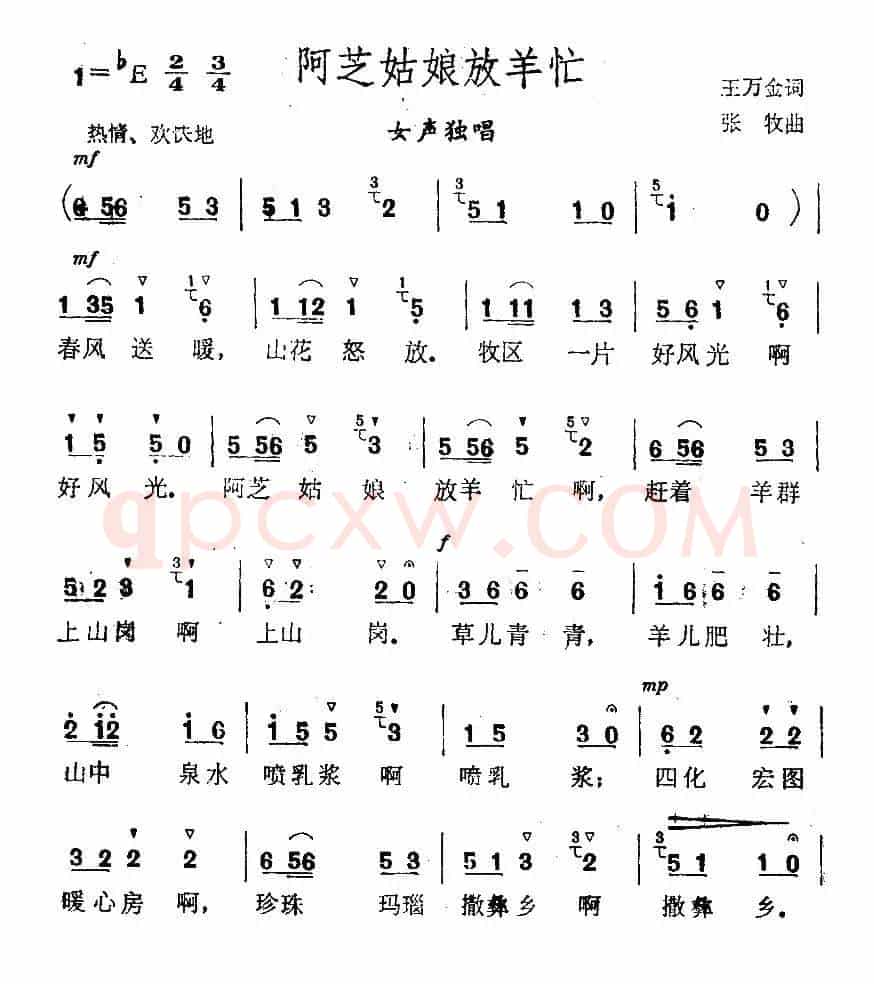 阿芝姑娘放羊忙
1=♭E 2/4 3/4
王万金词
热情、欢快地
女声独唱
张 牧曲
mf
(6 56 5 3 | 5 1 3 3 2 | 3 5 1 1 0 | 5 i 0 ) |
mf
1 35 1 1 6 | 1 12 1 1 5 | 1 11 1 3 | 5 6 1 1 6 |
春风 送 暖, 山花 怒 放. 牧区 一片 好风光 啊
1 5 5 0 | 5 56 5 5 3 | 5 56 5 5 2 | 6 56 5 3 |
好风 光. 阿芝 姑 娘 放羊 忙 啊, 赶着 羊群
qpcxw.COM
f
5 2 3 3 1 | 6 2 2 0 | 3 6 6 6 | i 6 6 6 |
上山岗 啊 上山 岗. 草儿青 青, 羊儿肥 壮,
mp
2 i2 i 6 | i 5 5 5 3 | 1 5 3 0 | 6 2 2 2 |
山中 泉水 喷乳浆 啊 喷乳 浆; 四化 宏图
3 2 2 2 | 6 56 5 3 | 5 1 3 3 2 | 3 5 1 1 0 |
暖心房 啊, 珍珠 玛瑙 撒彝乡 啊 撒彝 乡.